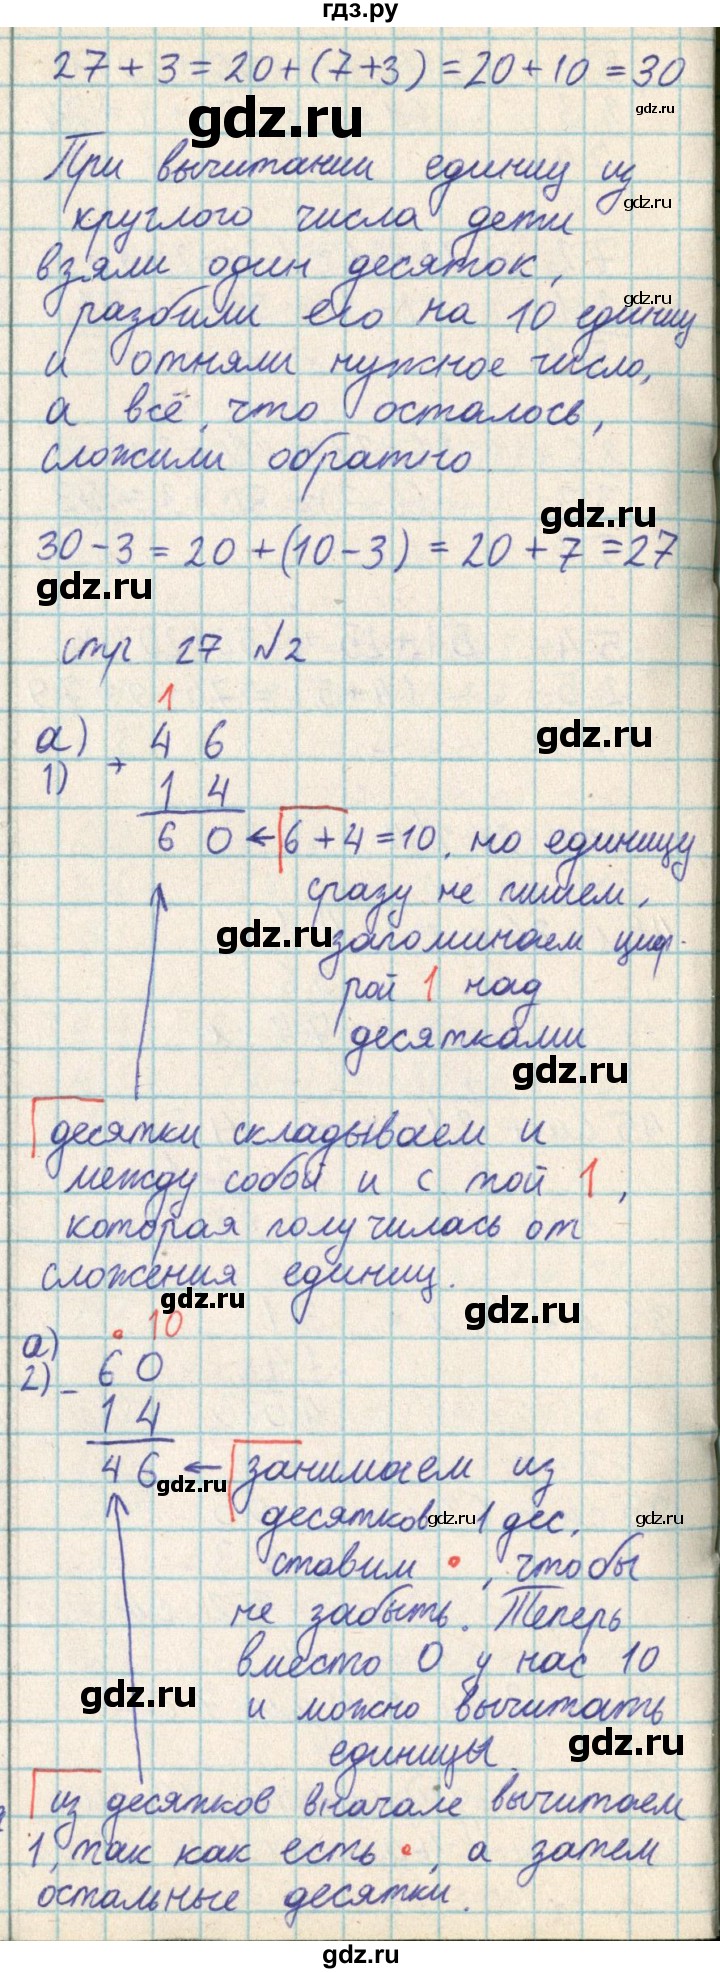 гдз.ру
27 + 3 = 20 + (7+3) = 20 + 10 = 30
gdz.ru
gdz.ru
При вычитании единиц из
gdz.ru
круглого числа дети
взяли один десяток,
gdz.ru
разбили его на 10 единиц
и отняли нужное число,
а всё, что осталось,
сложили обратно.
gdz.ru
30 - 3 = 20 + (10 - 3) = 20 + 7 = 27
gdz.ru
стр 27 №2
1
а)
1)
+ 46
gdz.ru
14
60 ← 6 + 4 = 10, но единицу
сразу не пишем,
gdz.ru
запоминаем циф-
рой 1 над
десятками
gdz.ru
десятки складываем и
между собой и с той 1,
которая получилась от
сложения единиц.
gdz.ru
gdz.ru
• 10
а)
2) - 60
14
46 ← занимаем из
gdz.ru
десятков 1 дес.
gdz.ru
gdz.ru
ставим •, чтобы
не забыть. Теперь
вместо 0 у нас 10
gdz.ru
и можно вычитать
единицы.
gdz.ru
из десятков вначале вычитаем
1, так как есть •, а затем
остальные десятки.
gdz.ru